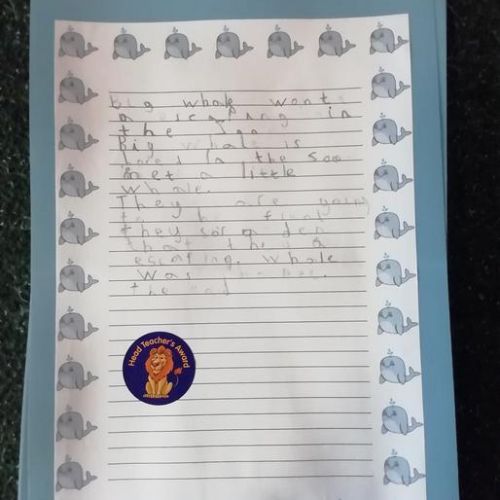 Big whale went
a escaping in
the
Big whale is
in the soo
met a little
whale.
They are going
to be
they so a den
that they
escaping. whale
was
the end
Head Teacher's Award